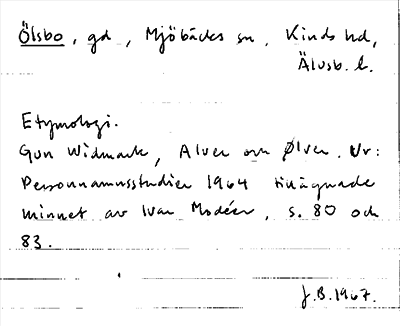 Ölsbo, gd, Mjöbäcks sn, Kinds hd,
Älvsb. l.
Etymologi.
Gun Widmark, Alver och Ølver. Ur:
Personnamnsstudier 1964 tillägnade
minnet av Ivar Modéer, s. 80 och
83.
J.B. 1967.